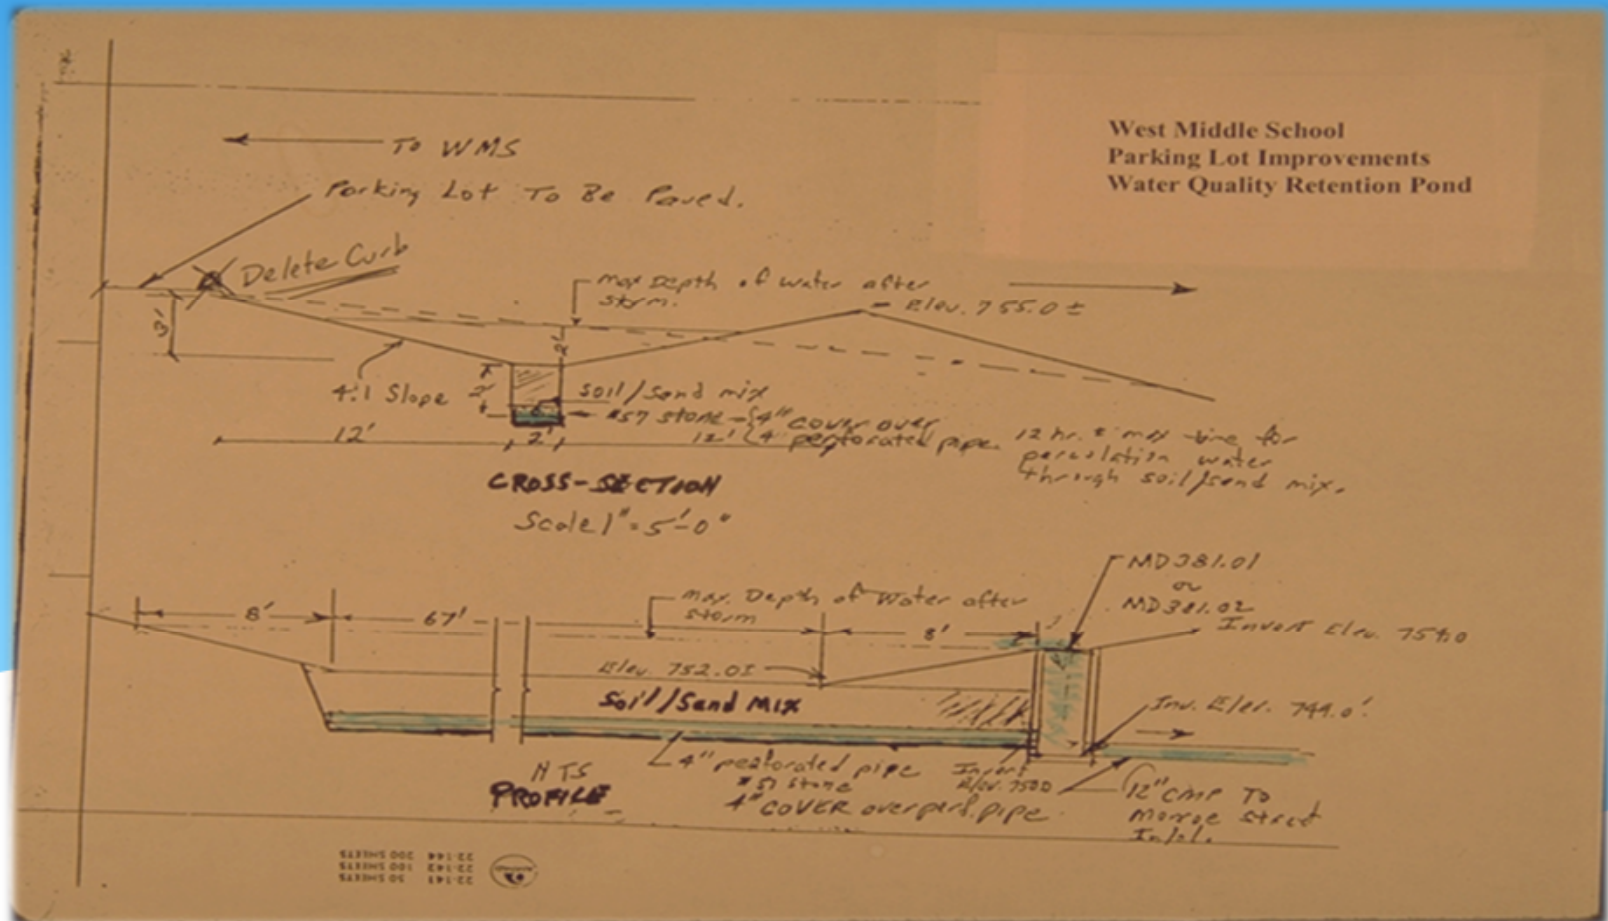 West Middle School
Parking Lot Improvements
Water Quality Retention Pond
To WMS
Parking Lot To Be Paved.
Delete Curb
max Depth of water after
storm.
Elev. 755.0 ±
3'
2'
4:1 Slope
2'
soil/sand mix
#57 stone - 4" cover over
4" perforated pipe.
12'
2'
12'
12 hr. ± max time for
percolation water
through soil/sand mix.
CROSS-SECTION
Scale 1" = 5'-0"
MD381.01
or
MD381.02
8'
67'
max. Depth of Water after
storm
8'
Invert Elev.
Elev. 752.0±
Soil/Sand Mix
Inv. Elev. 749.0'
4" peaforated pipe
#57 stone
4" COVER over perf. pipe
Invert
Elev. 750.0
12" CMP To
Monroe Street
Inlet.
NTS
PROFILE
22-141 50 SHEETS
22-142 100 SHEETS
22-144 200 SHEETS